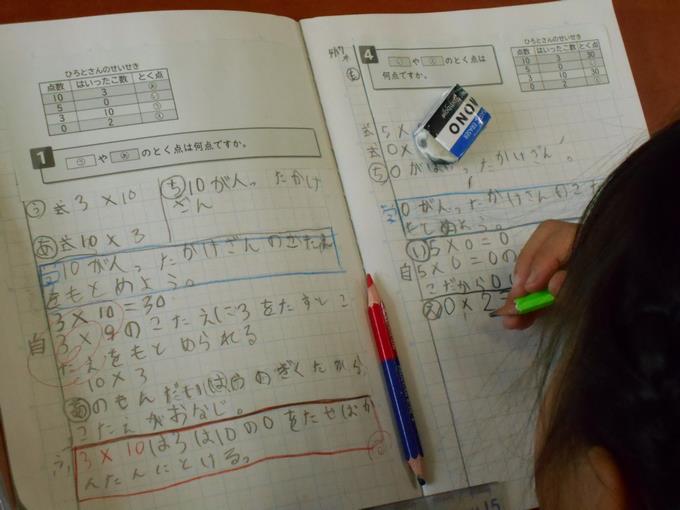 ひろとさんのせいせき
点数 はいったこ数 とく点
10 3 あ
5 0 い
3 10 う
0 2 え
1 う や あ のとく点は何点ですか。
う 式 3 × 10
あ 式 10 × 3
ち 10が入ったかけ
ざん
10が入ったかけざんのこたえ
をもとめよう。
3 × 10 = 30
自 3 × 9 のこたえに3をたすとこ
たえをもとめられる
10 × 3
あのもんだいはうのぎゃくだから
こたえがおなじ。
3 × 10は3は10の0をたせばか
んたんにとける。
4
い や え のとく点は
何点ですか。
ひろとさんのせいせき
点数 はいったこ数 とく点
10 3 30
5 0
3 10 30
0 2
MONO
式 5 ×
式 0 ×
ち 0がはいったかけざん。
0が入ったかけざんのこた
もとめよう。
い 5 × 0 = 0
自 5 × 0 = 0の
こだから0
え 0 × 2 =
15